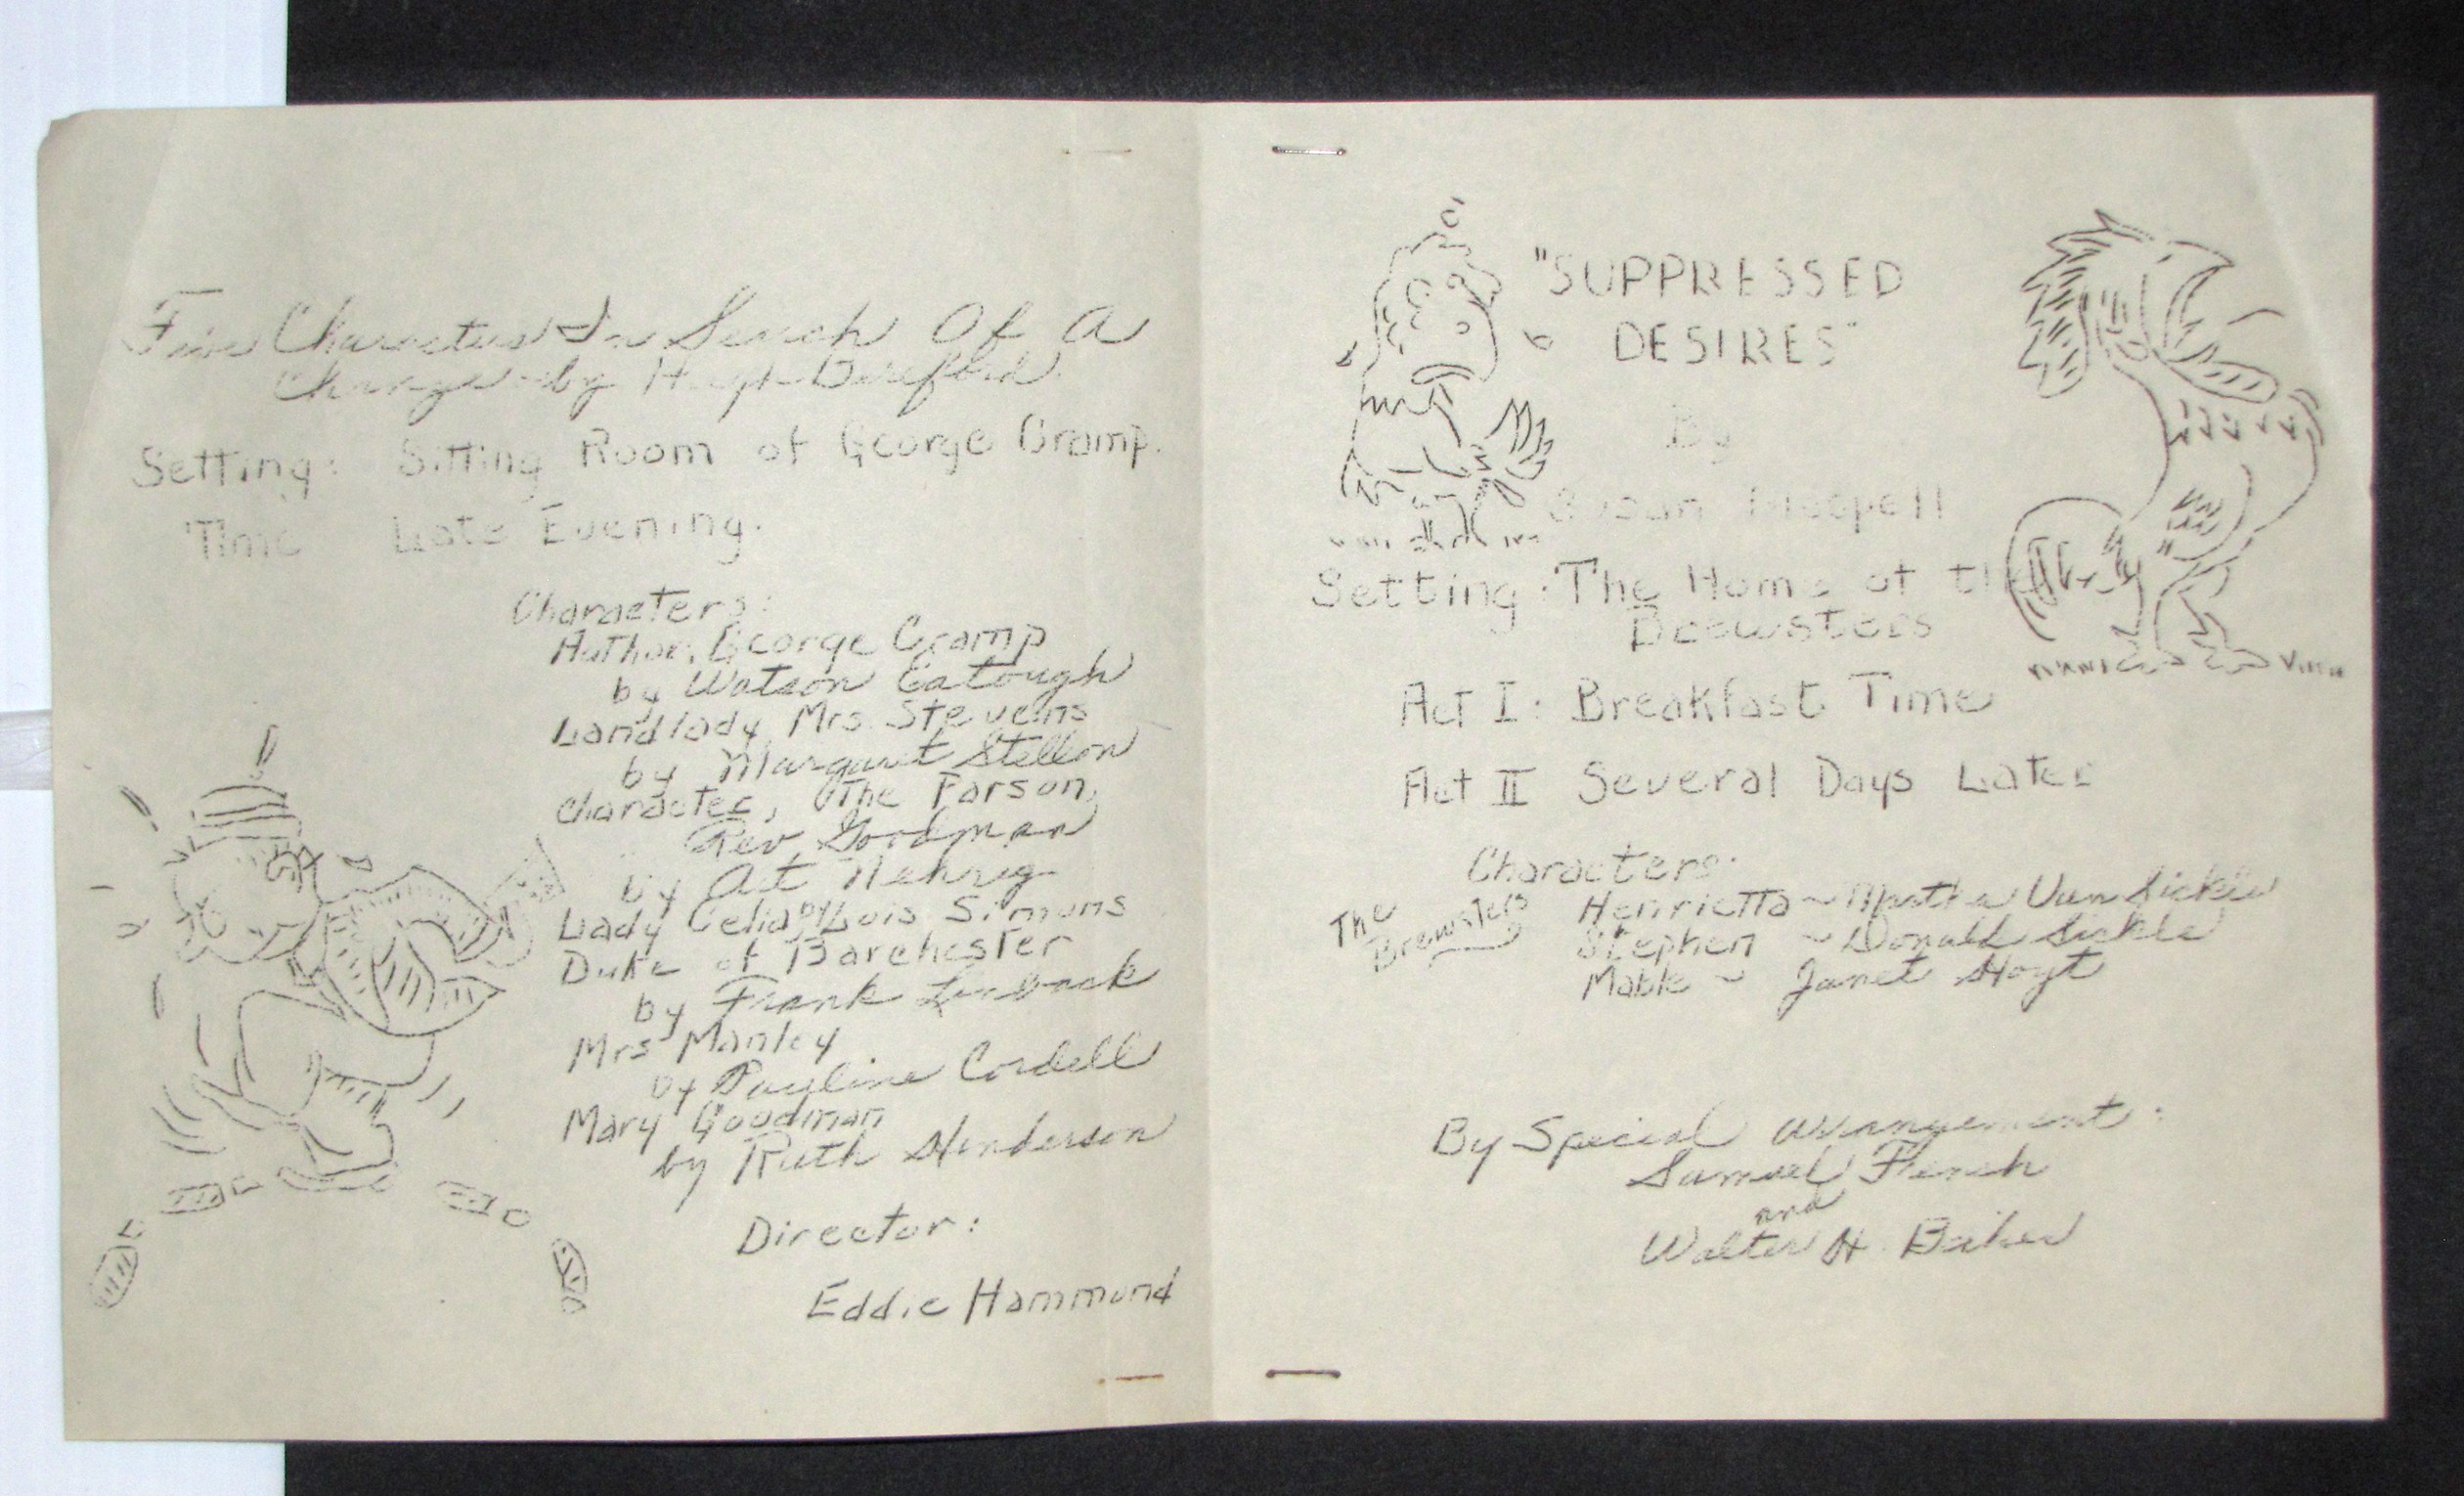 Five Characters In Search Of A
Change by Hugh Bereford.
Setting: Sitting Room of George Cramp.
Time Late Evening.
Characters:
Author, George Cramp
by Watson Eatough
Landlady Mrs. Stevens
by Margaret
Character, The Parson,
Rev Goodman
by Art Nehrig
Lady Celia, by Lois Simons
Duke of Barchester
by Frank
Mrs Manley
by Pauline Cordell
Mary Goodman
by Ruth Henderson
Director:
Eddie Hammond
"SUPPRESSED
DESIRES"
By
Susan Glaspell
Setting: The Home of the
Brewsters
Act I: Breakfast Time
Act II Several Days Later
Characters:
The Brewsters
Henrietta ~ Martha Van Sickle
Stephen ~ Donald Sickle
Mable ~ Janet Hoyt
By Special arrangement:
Samuel French
and
Walter H. Baker